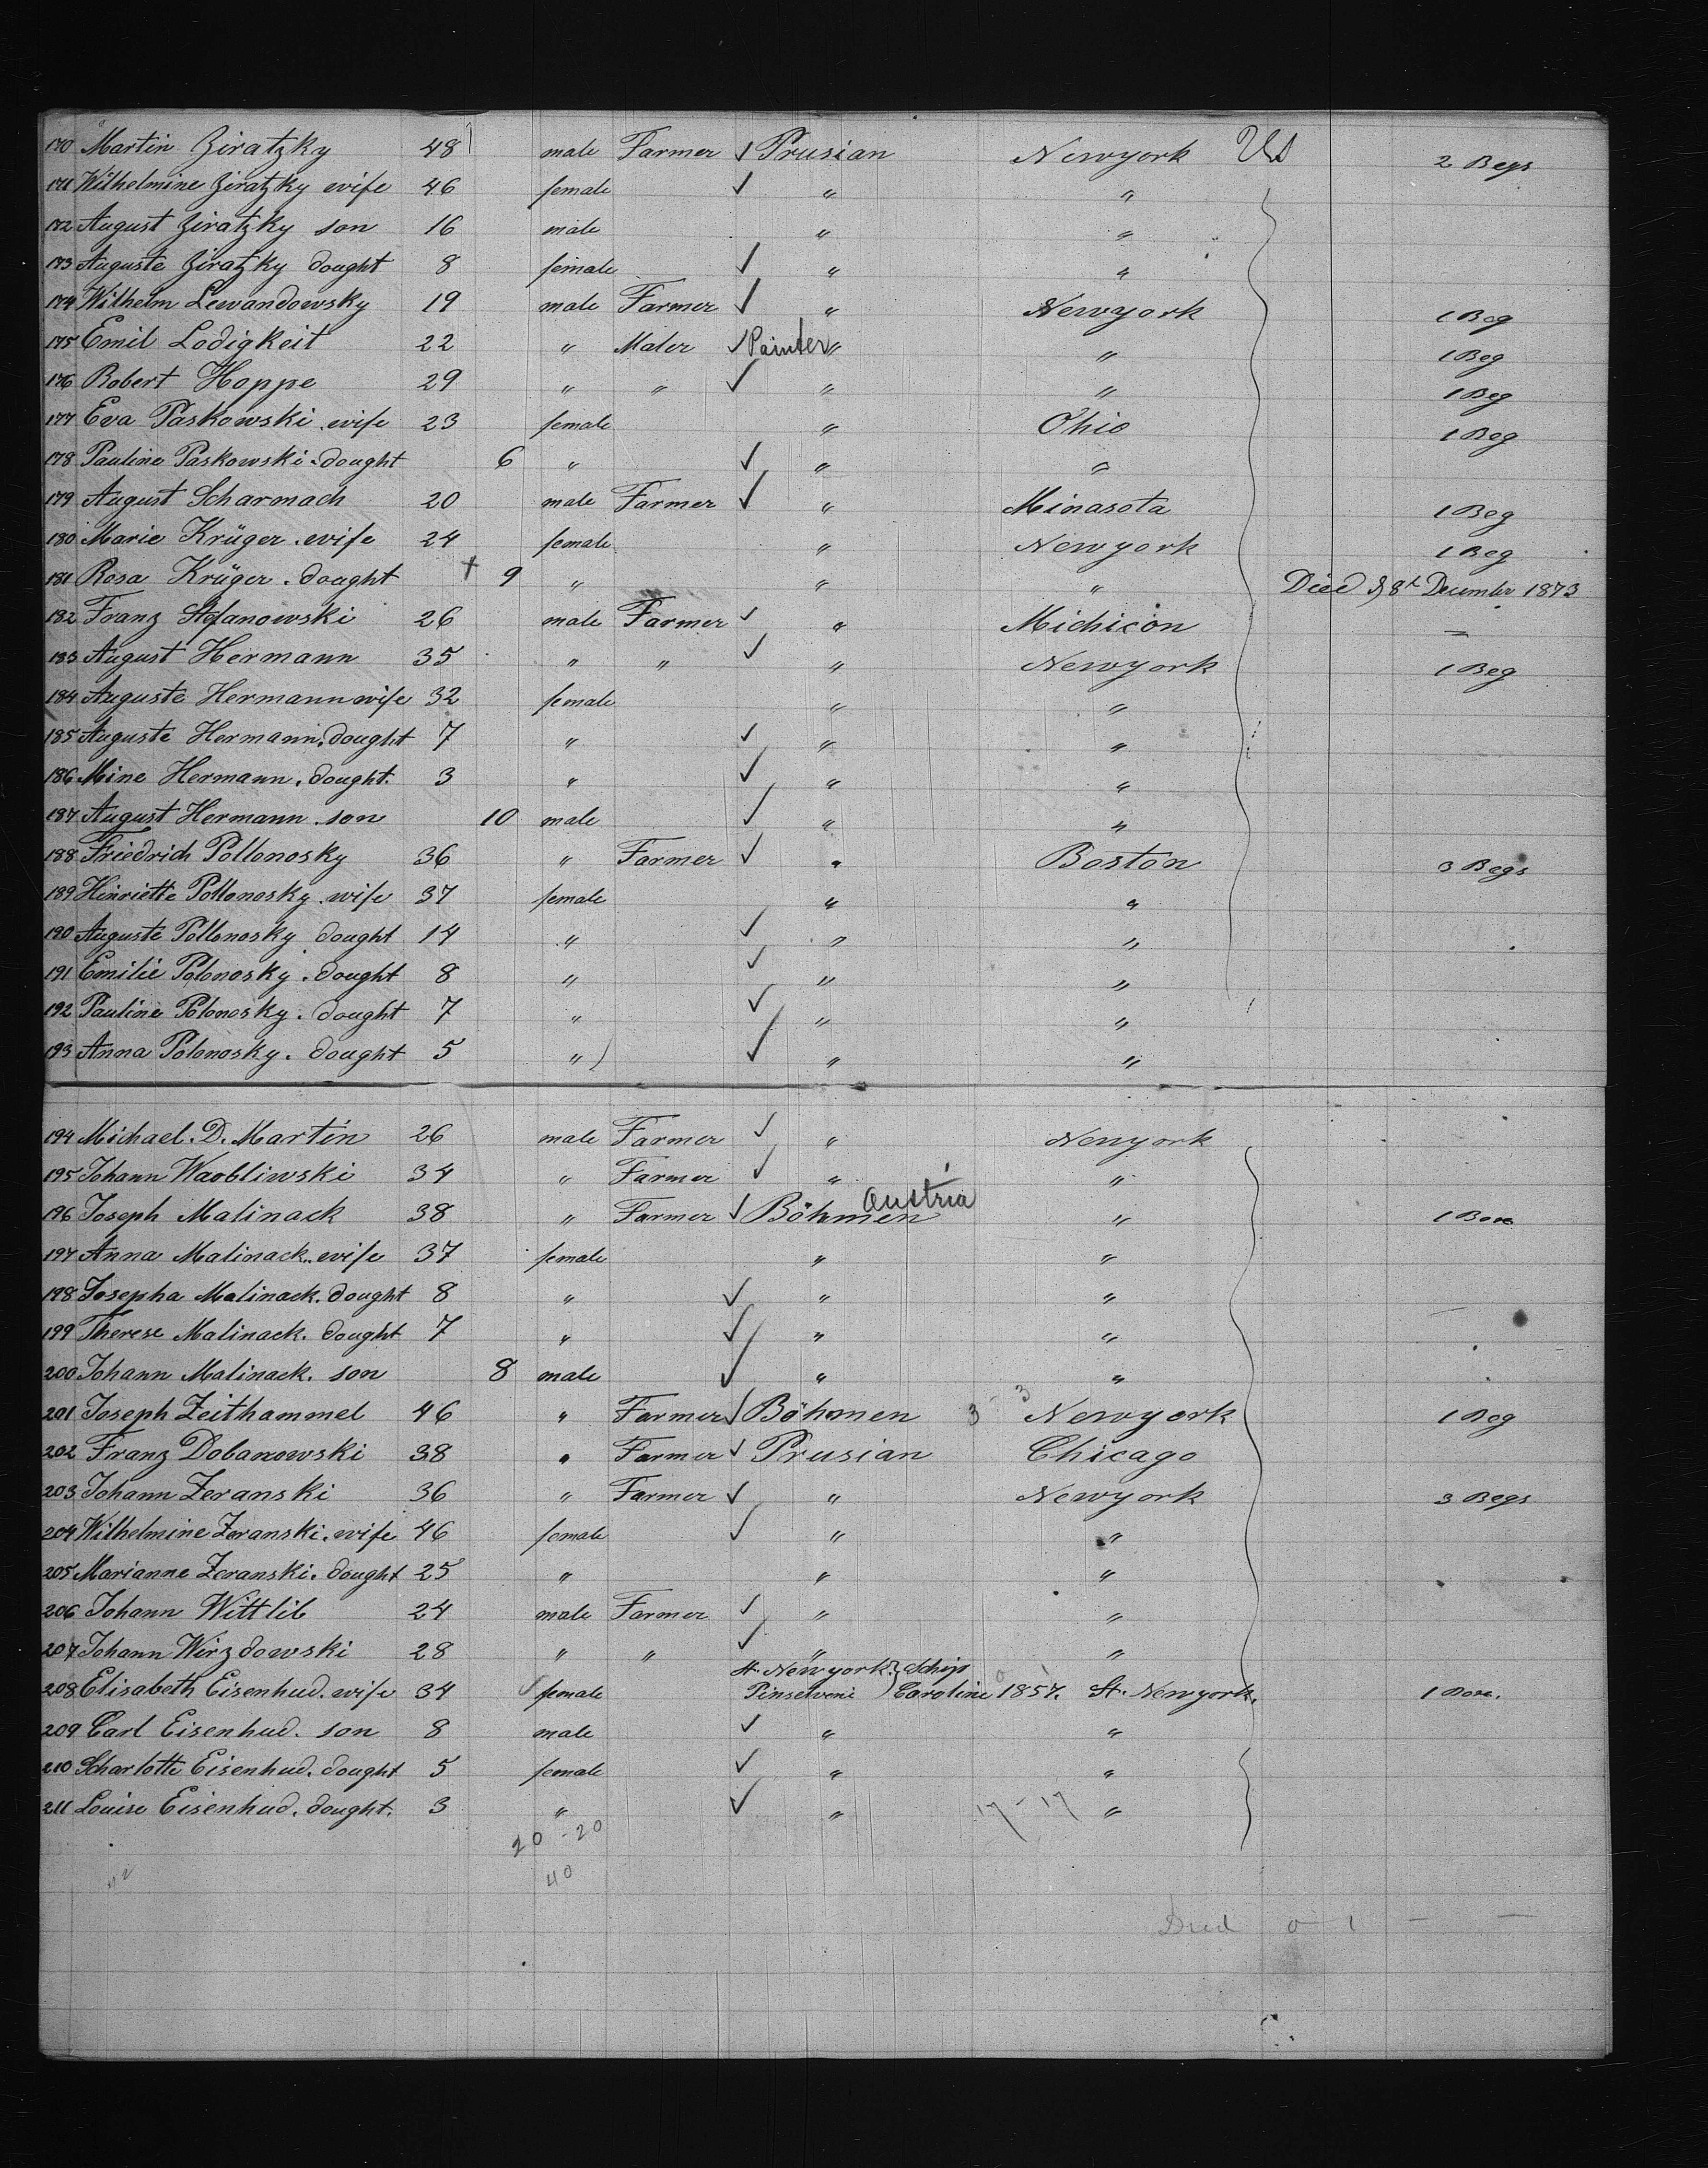 170 Martin Ziratzky 48 male Farmer ✓ Prusian Newyork US 2 Begs
171 Wilhelmine Ziratzky wife 46 female ✓ " "
172 August Ziratzky son 16 male " "
173 Auguste Ziratzky dought 8 female ✓ " "
174 Wilhelm Lewandowsky 19 male Farmer ✓ " Newyork 1 Beg
175 Emil Lodigkeit 22 " Maler ✓ Painter " " 1 Beg
176 Robert Hoppe 29 " " ✓ " " 1 Beg
177 Eva Paskowski . wife 23 female " Ohio 1 Beg
178 Pauline Paskowski . dought 6 " ✓ " "
179 August Scharmach 20 male Farmer ✓ " Minasota 1 Beg
180 Marie Krüger . wife 24 female " Newyork 1 Beg
181 Rosa Krüger . dought † 9 " " " Died 8t December 1873
182 Franz Stefanowski 26 male Farmer ✓ " Michicon
183 August Hermann 35 " " ✓ " Newyork 1 Beg
184 Auguste Hermann wife 32 female " "
185 Auguste Hermann . dought 7 " ✓ " "
186 Mine Hermann . dought. 3 " ✓ " "
187 August Hermann . son 10 male ✓ " "
188 Friedrich Pollonosky 36 " Farmer ✓ " Boston 3 Begs
189 Hinriette Pollonosky . wife 37 female " "
190 Auguste Pollonosky dought 14 " ✓ " "
191 Emilie Polonosky . dought 8 " ✓ " "
192 Pauline Polonosky . dought 7 " ✓ " "
193 Anna Polonosky . dought 5 " ✓ " "
194 Michael . D. Martin 26 male Farmer ✓ " Newyork
195 Johann Waobliwski 34 " Farmer ✓ " "
Austria
196 Joseph Malinack 38 " Farmer ✓ Böhmen " 1 Box
197 Anna Malinack . wife 37 female " "
198 Josepha Malinack . dought 8 " ✓ " "
199 Therese Malinack . dought 7 " ✓ " "
200 Johann Malinack . son 8 male ✓ " "
201 Joseph Zeithammel 46 " Farmer ✓ Böhmen 3 3 Newyork 1 Beg
202 Franz Dobanowski 38 " Farmer ✓ Prusian Chicago
203 Johann Zeranski 36 " Farmer ✓ " Newyork 3 Begs
204 Wilhelmine Zeranski . wife 46 female ✓ " "
205 Marianne Zeranski . dought 25 " " "
206 Johann Wittlib 24 male Farmer ✓ " "
207 Johann Wirzdowski 28 " " ✓ " "
St. Newyork. } Schip
208 Elisabeth Eisenhud . wife 34 female Pinselveni Caroline 1857. St. Newyork. 1 Box.
209 Carl Eisenhud . son 8 male ✓ " "
210 Scharlotte Eisenhud . dought 5 female ✓ " "
211 Louise Eisenhud . dought. 3 " ✓ " 17 - 17 "
20 - 20
42 40
Died 0 1 - -